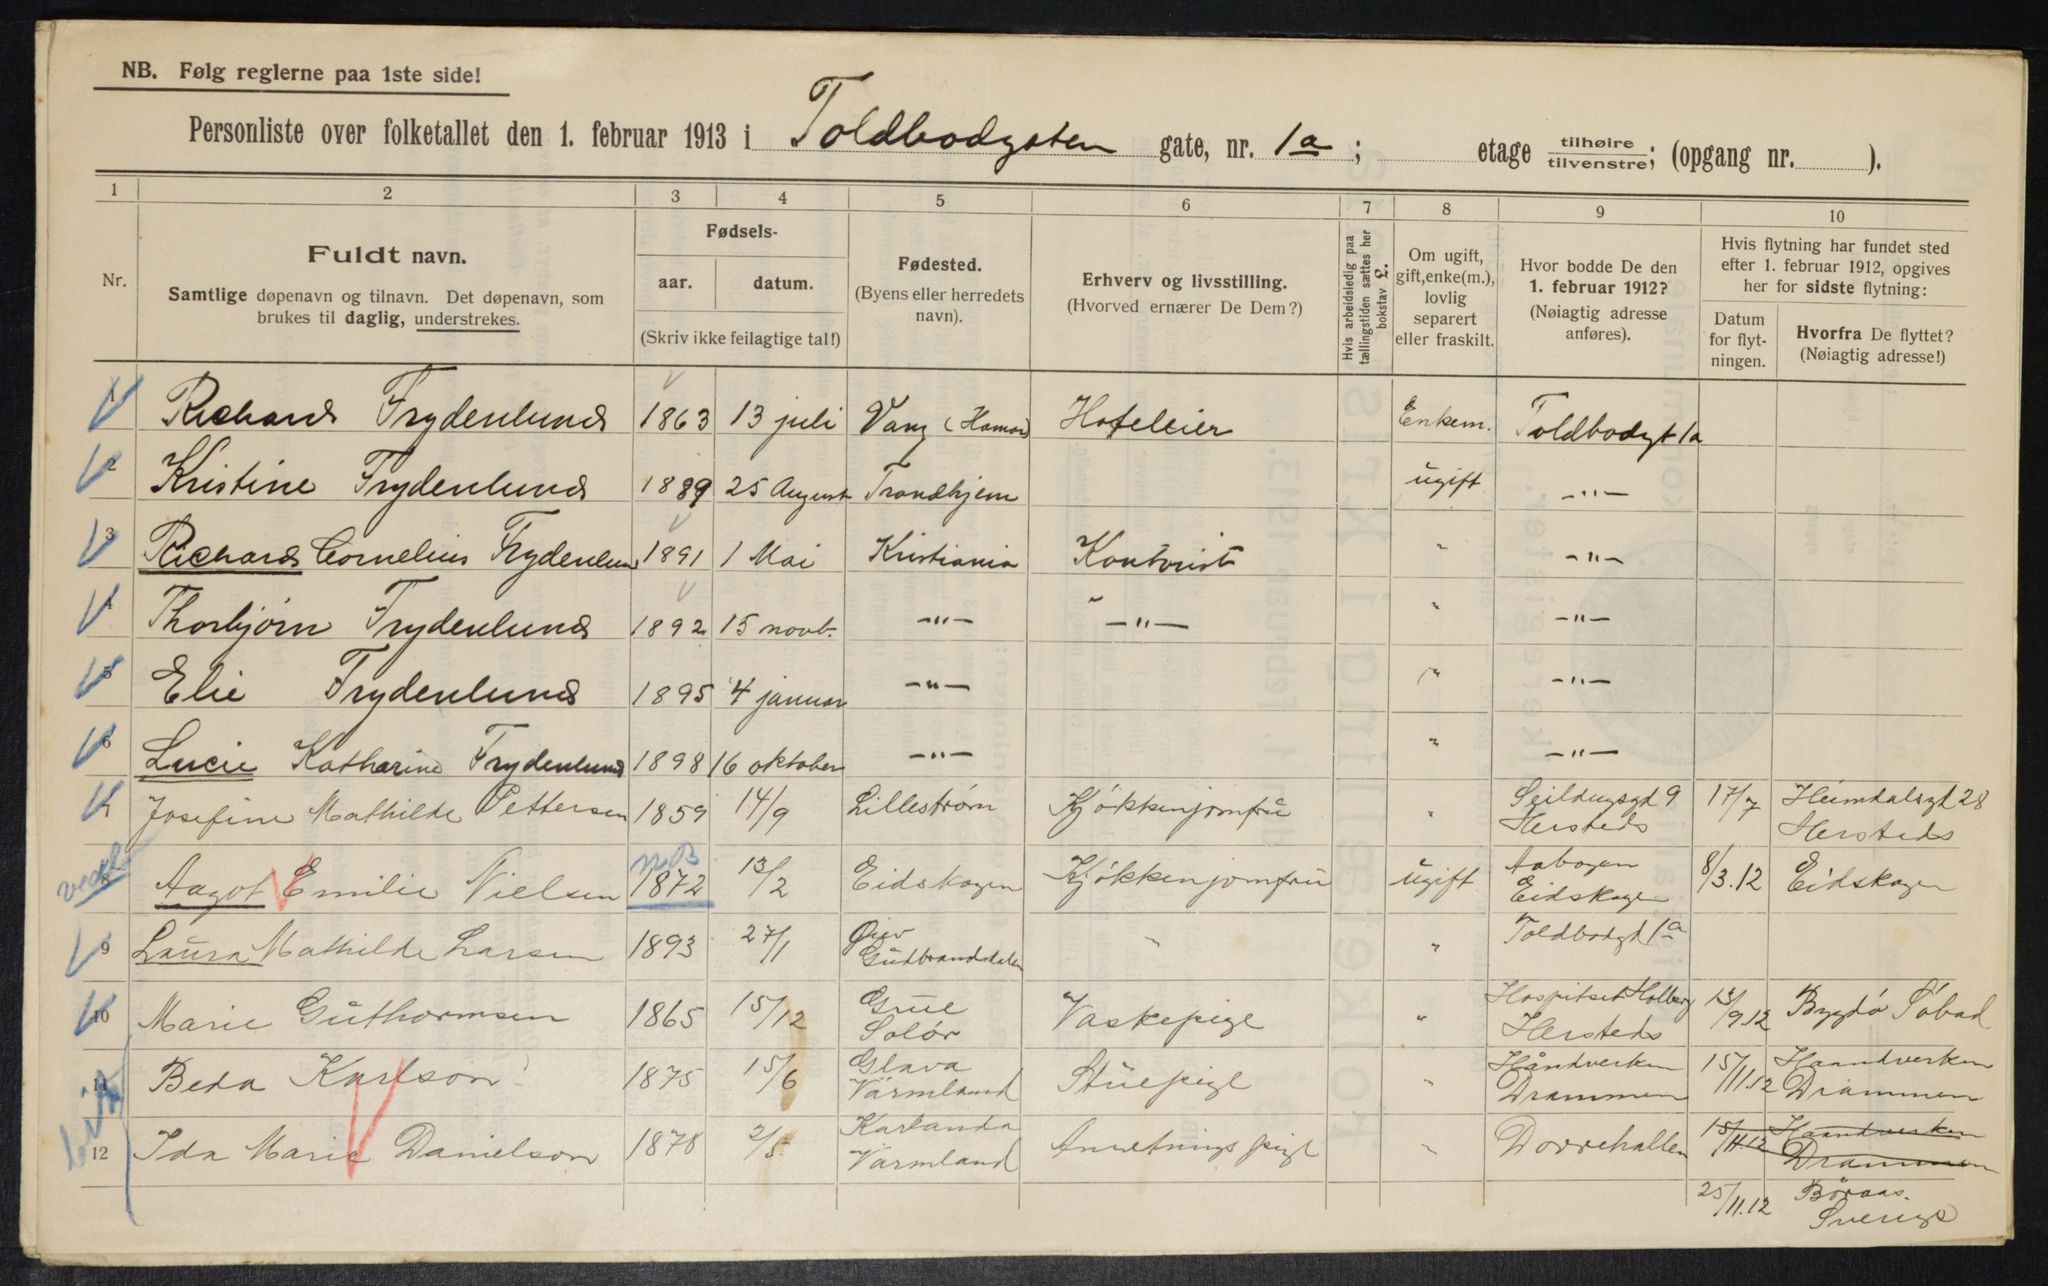 NB. Følg reglerne paa 1ste side!
Personliste over folketallet den 1. februar 1913 i Toldbodgaten gate, nr. 1a; etage tilhøire tilvenstre; (opgang nr. ).
1 2 3 4 5 6 7 8 9 10
Nr.
Fuldt navn.
Samtlige døpenavn og tilnavn. Det døpenavn, som
brukes til daglig, understrekes.
Fødsels-
aar. datum.
(Skriv ikke feilagtige tal!)
Fødested.
(Byens eller herredets
navn).
Erhverv og livsstilling.
(Hvorved ernærer De Dem?)
Hvis arbeidsledig paa
tællingstiden sættes her
bokstav £.
Om ugift,
gift, enke(m.),
lovlig
separert
eller fraskilt.
Hvor bodde De den
1. februar 1912?
(Nøiagtig adresse
anføres).
Hvis flytning har fundet sted
efter 1. februar 1912, opgives
her for sidste flytning:
Datum
for flyt-
ningen.
Hvorfra De flyttet?
(Nøiagtig adresse!)
1 Richard Frydenlund 1863 13 juli Vang (Hamar) Hoteleier Enkem. Toldbodgt 1a
2 Kristine Frydenlund 1889 25 August Trondhjem ugift —"—
3 Richard Cornelius Frydenlund 1891 1 Mai Kristiania Kontorist " —"—
4 Thorbjørn Frydenlund 1892 15 novb. —"— —"— " —"—
5 Elie Frydenlund 1895 4 januar —"— " —"—
6 Lucie Katharine Frydenlund 1898 16 oktober —"— " —"—
Josefine Mathilde Pettersen 1859 14/9 Lillestrøm Kjökkenjomfru " Seildugsgt 9 Hersteds 17/7 Heimdalsgt 28 Hersteds
NB
8 Aagot Emilie Nielsen 1872 13/2 Eidskogen Kjökkenjomfru ugift Aabogen Eidskogen 8/3.12 Eidskogen
9 Laura Mathilde Larsen 1893 27/1 Gudbrandsdalen " " Toldbodgt 1a
10 Marie Guthormsen 1865 15/12 Grue Solör Vaskepige " Hospitset Holberg Hersteds 13/9.12 Bygdö Söbad
11 Beda Karlson 1875 15/6 Glava Värmland Stuepige " Håndverken Drammen 15/11.12 Haandverken Drammen
12 Ida Marie Danielson 1878 2/5 Karlanda Värmland Anretningspige " Dovrehallen 15/11.12 Haandverken Drammen
25/11.12 Böraas.
Sverige